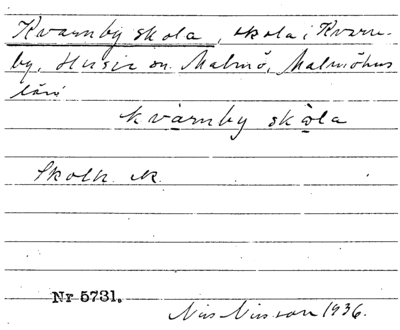 Kvarnby skola, skola i Kvarn-
by, Husie sn. Malmö, Malmöhus
län
kvarnby skola
Skolk. M.
Nr 5731.
Nils Nilsson 1936.